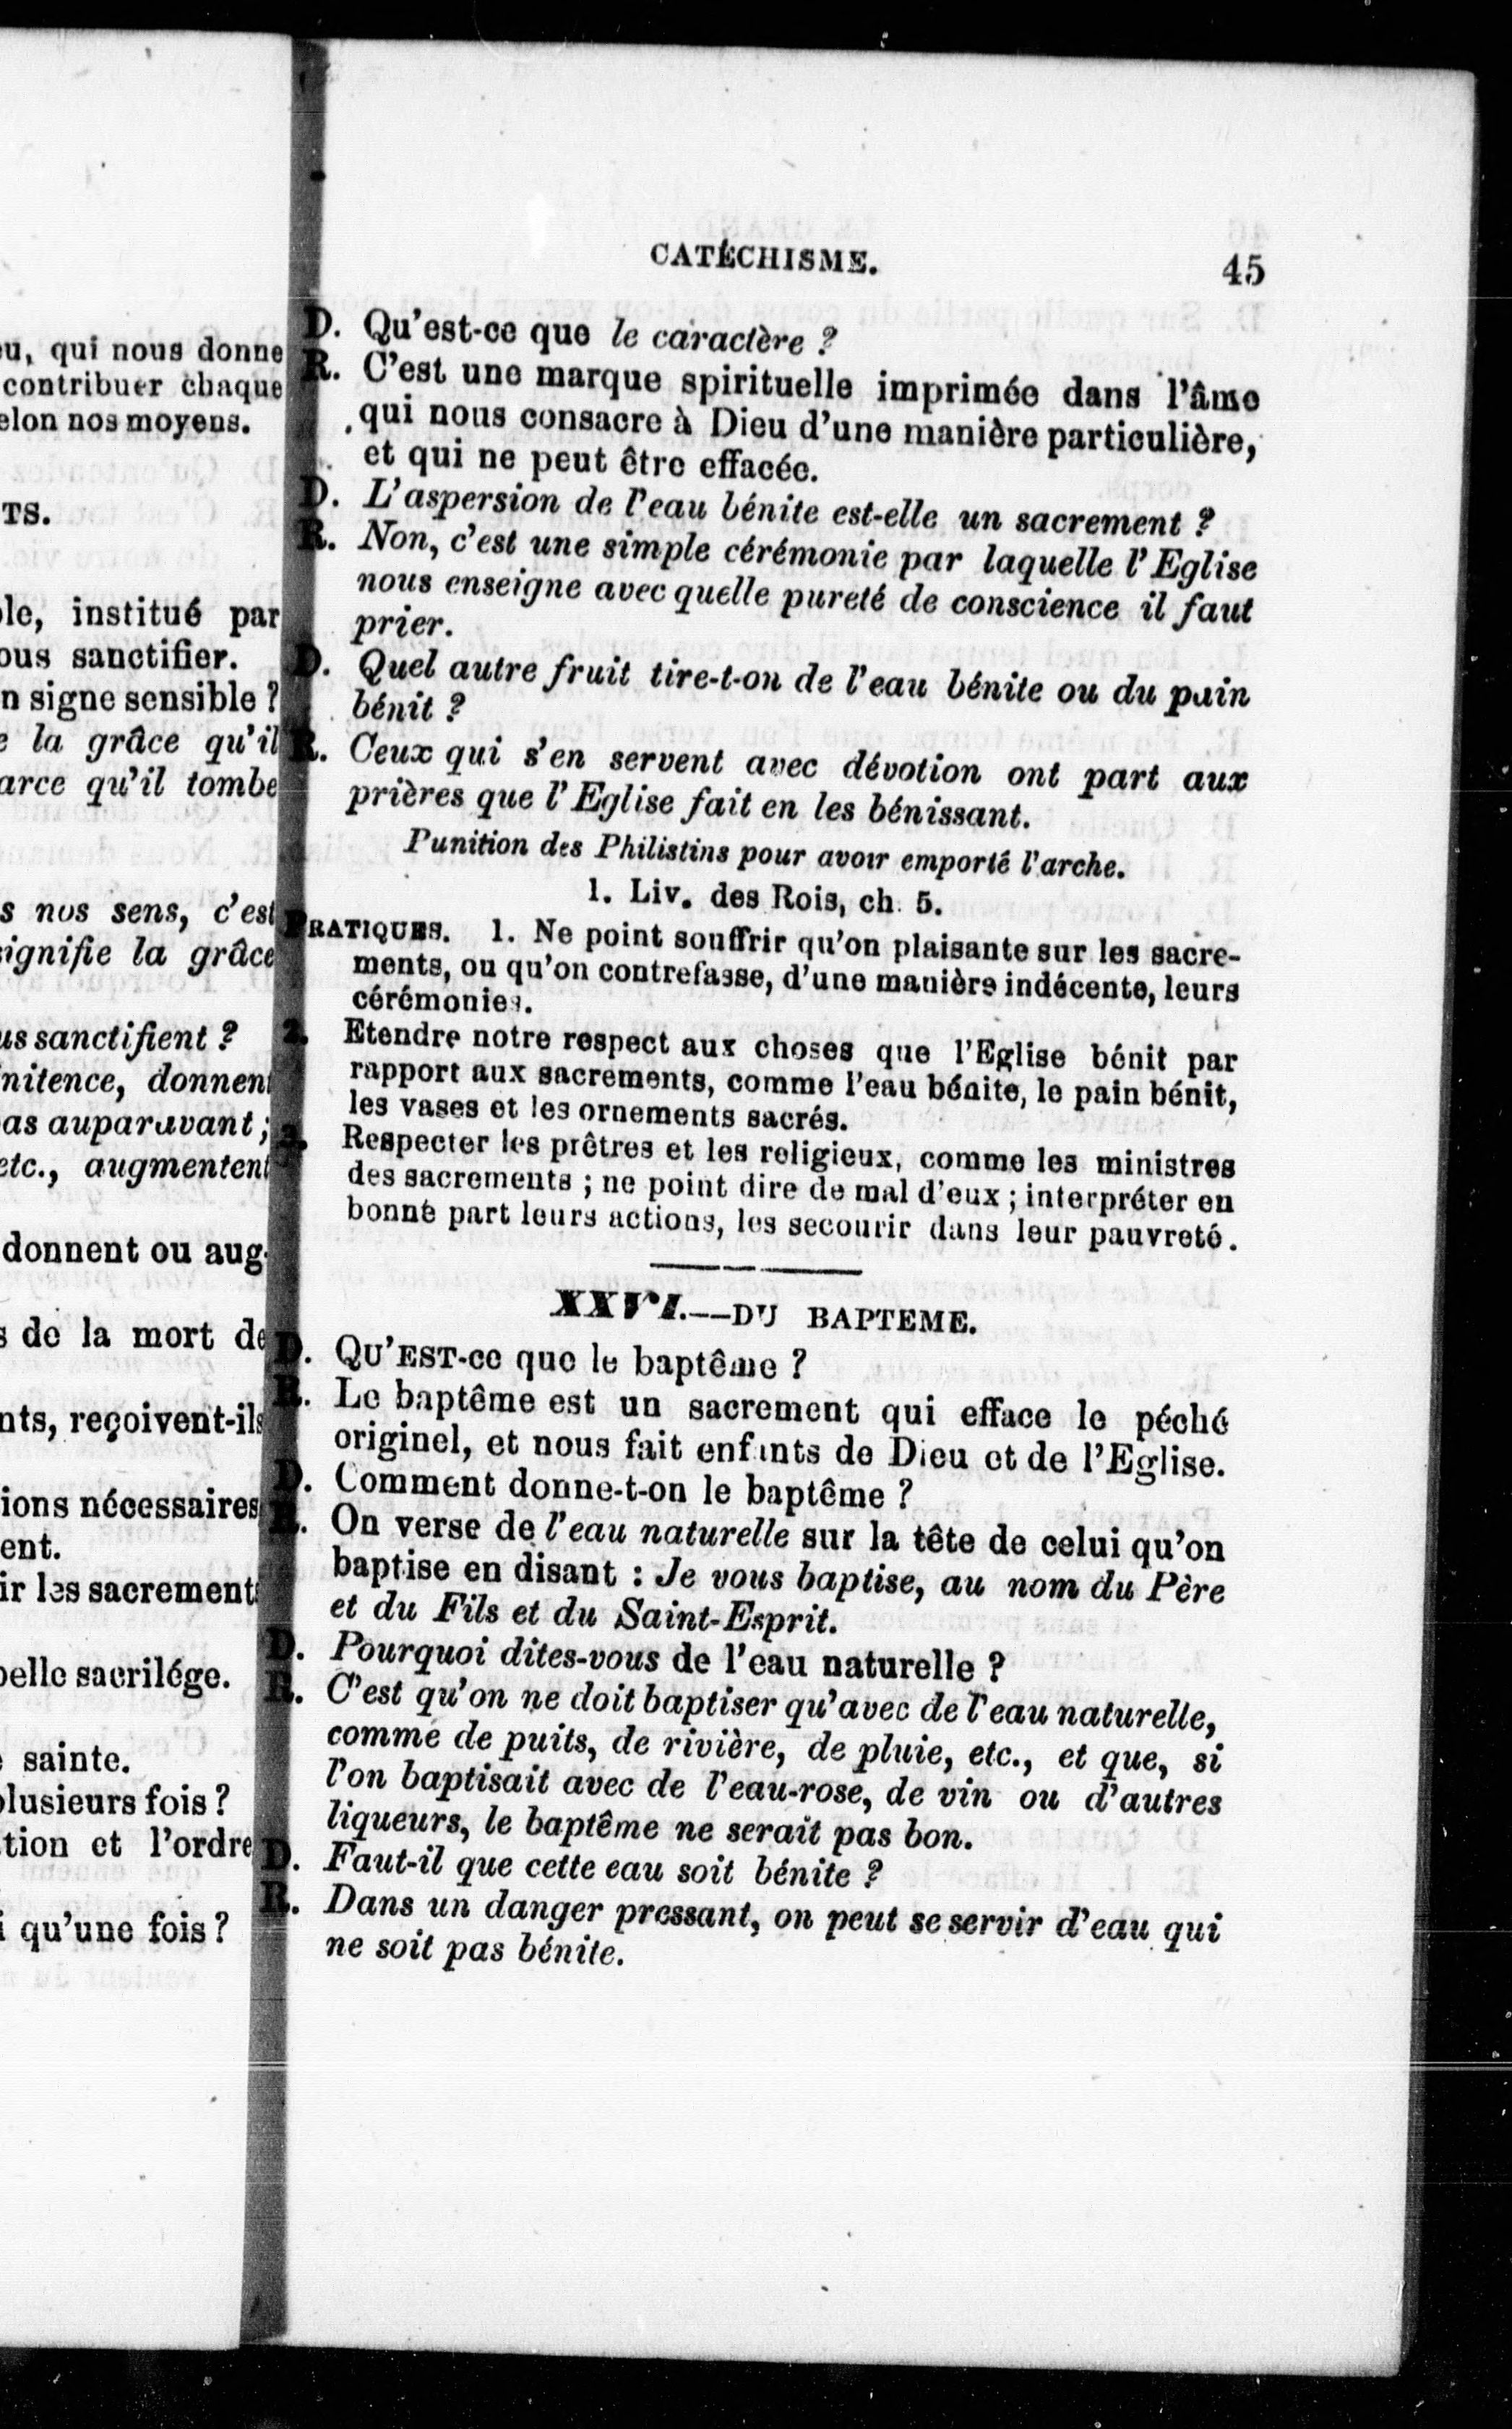 u, qui nous donne
contribuer chaque
elon nos moyens.
TS.
le, institué par
ous sanctifier.
n signe sensible ?
e la grâce qu'il
arce qu'il tombe
s nos sens, c'est
signifie la grâce
us sanctifient ?
nitence, donnent
as auparavant ;
etc., augmentent
donnent ou aug-
s de la mort de
nts, reçoivent-ils
ions nécessaires
ent.
ir les sacrements
pelle sacrilége.
e sainte.
plusieurs fois ?
tion et l'ordre
i qu'une fois ?
CATÉCHISME. 45
D. Qu'est-ce que le caractère ?
R. C'est une marque spirituelle imprimée dans l'âme
qui nous consacre à Dieu d'une manière particulière,
et qui ne peut être effacée.
D. L'aspersion de l'eau bénite est-elle un sacrement ?
R. Non, c'est une simple cérémonie par laquelle l'Eglise
nous enseigne avec quelle pureté de conscience il faut
prier.
D. Quel autre fruit tire-t-on de l'eau bénite ou du pain
bénit ?
R. Ceux qui s'en servent avec dévotion ont part aux
prières que l'Eglise fait en les bénissant.
Punition des Philistins pour avoir emporté l'arche.
1. Liv. des Rois, ch. 5.
PRATIQUES. 1. Ne point souffrir qu'on plaisante sur les sacre-
ments, ou qu'on contrefasse, d'une manière indécente, leurs
cérémonies.
2. Etendre notre respect aux choses que l'Eglise bénit par
rapport aux sacrements, comme l'eau bénite, le pain bénit,
les vases et les ornements sacrés.
3. Respecter les prêtres et les religieux, comme les ministres
des sacrements ; ne point dire de mal d'eux ; interpréter en
bonne part leurs actions, les secourir dans leur pauvreté.
XXVI.—DU BAPTEME.
D. QU'EST-ce que le baptême ?
R. Le baptême est un sacrement qui efface le péché
originel, et nous fait enfants de Dieu et de l'Eglise.
D. Comment donne-t-on le baptême ?
R. On verse de l'eau naturelle sur la tête de celui qu'on
baptise en disant : Je vous baptise, au nom du Père
et du Fils et du Saint-Esprit.
D. Pourquoi dites-vous de l'eau naturelle ?
R. C'est qu'on ne doit baptiser qu'avec de l'eau naturelle,
comme de puits, de rivière, de pluie, etc., et que, si
l'on baptisait avec de l'eau-rose, de vin ou d'autres
liqueurs, le baptême ne serait pas bon.
D. Faut-il que cette eau soit bénite ?
R. Dans un danger pressant, on peut se servir d'eau qui
ne soit pas bénite.